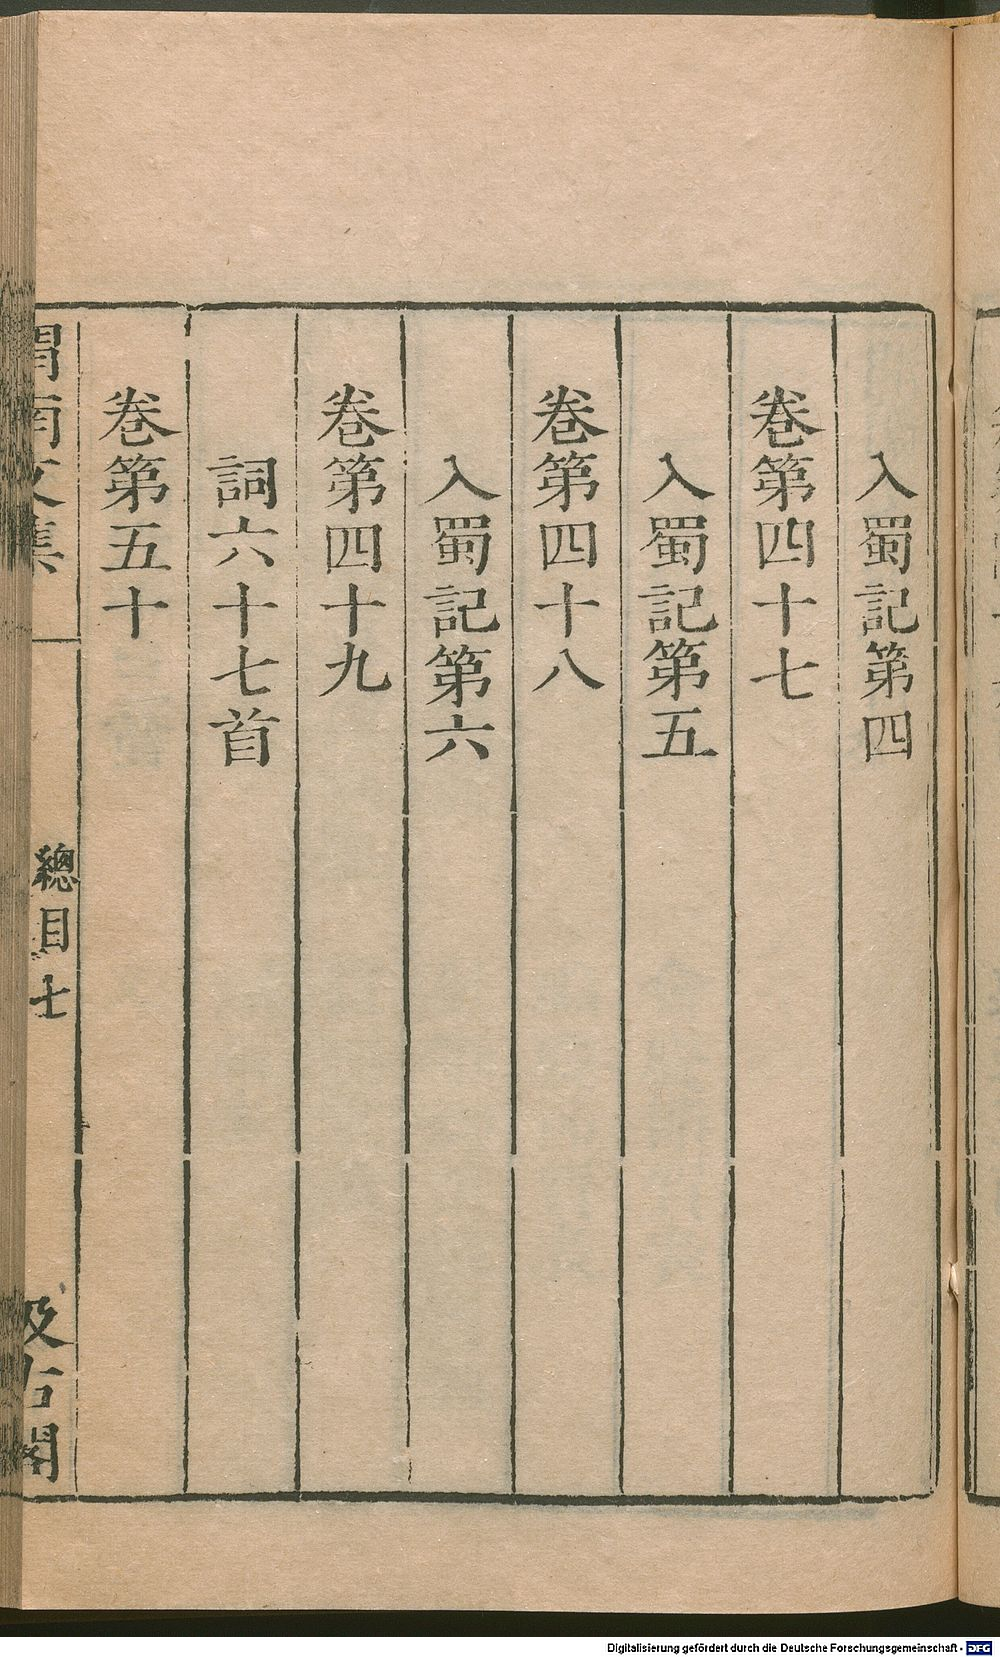 入蜀記第四
卷第四十七
入蜀記第五
卷第四十八
入蜀記第六
卷第四十九
詞六十七首
卷第五十
渭南文集
總目
士
汲古閣
Digitalisierung gefördert durch die Deutsche Forschungsgemeinschaft - DFG